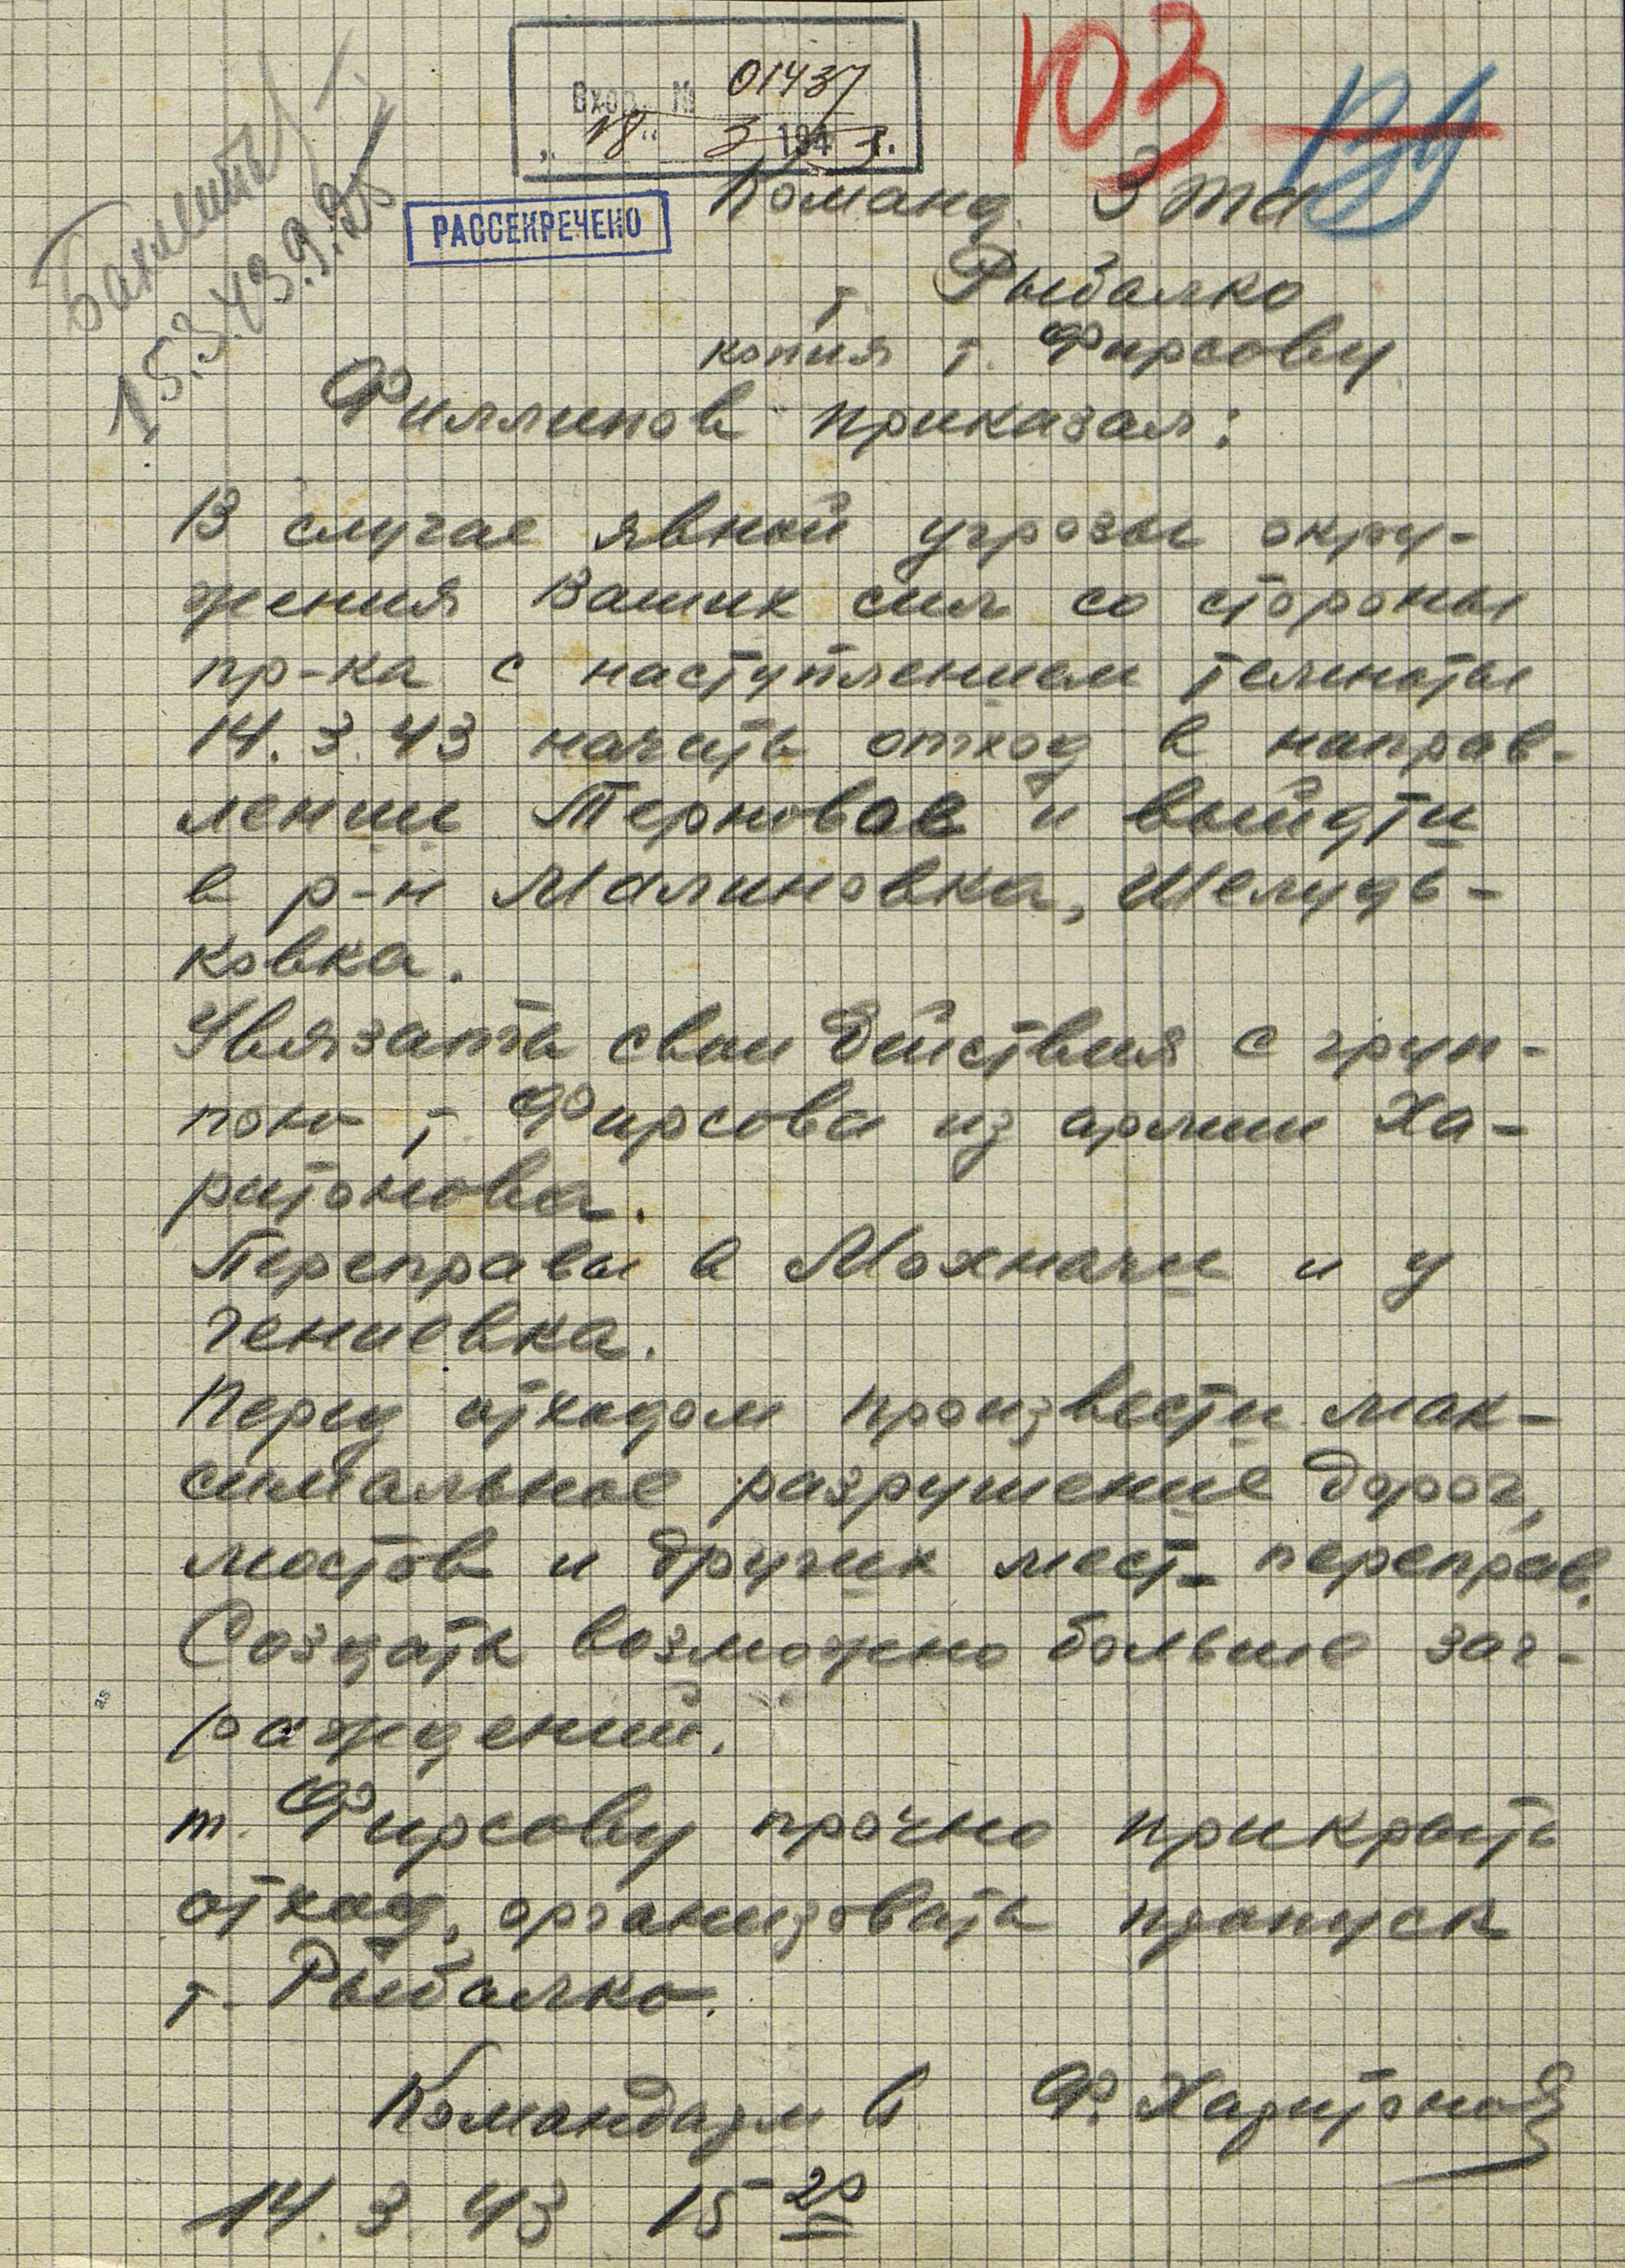 Вход. № 01437
„18“ 3 1943 г.
103
РАССЕКРЕЧЕНО
15.3.43. 9.25
Команд. 3 та
т. Рыбалко
копия т. Фирсову
Филлипов приказал:
В случае явной угрозы окру-
жения Ваших сил со стороны
пр-ка с наступлением темноты
14.3.43 начать отход в направ-
лении Терновая и выйдти
в р-н Малиновка, Шелудь-
ковка.
Увязать свои действия с груп-
пою т. Фирсова из армии Ха-
ритонова.
Переправы в Мохначи и у
Гениевка.
Перед отходом произвести мак-
симальное разрушение дорог,
мостов и других мест переправ.
Создать возможно больше заг-
раждений.
т. Фирсову прочно прикрыть
отход, организовать пропуск
т. Рыбалко.
Командарм 6 Ф. Харитонов
14.3.43 15 20